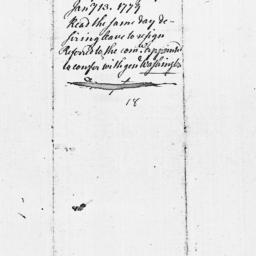 Jany 13. 1779
Read the same day de-
siring leave to resign
Referred to the comee. appointed
to confer with genl Washington
18